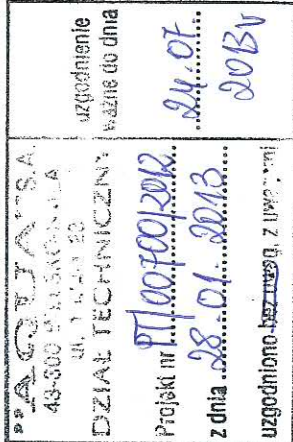 "AQUA" S.A.
DZIAŁ TECHNICZNY
Projekt nr PT/00700/2012
z dnia 28.01.2013
uzgodniono bez uwag, z uwagami
uzgodnienie
ważne do dnia
24.07.
2013r